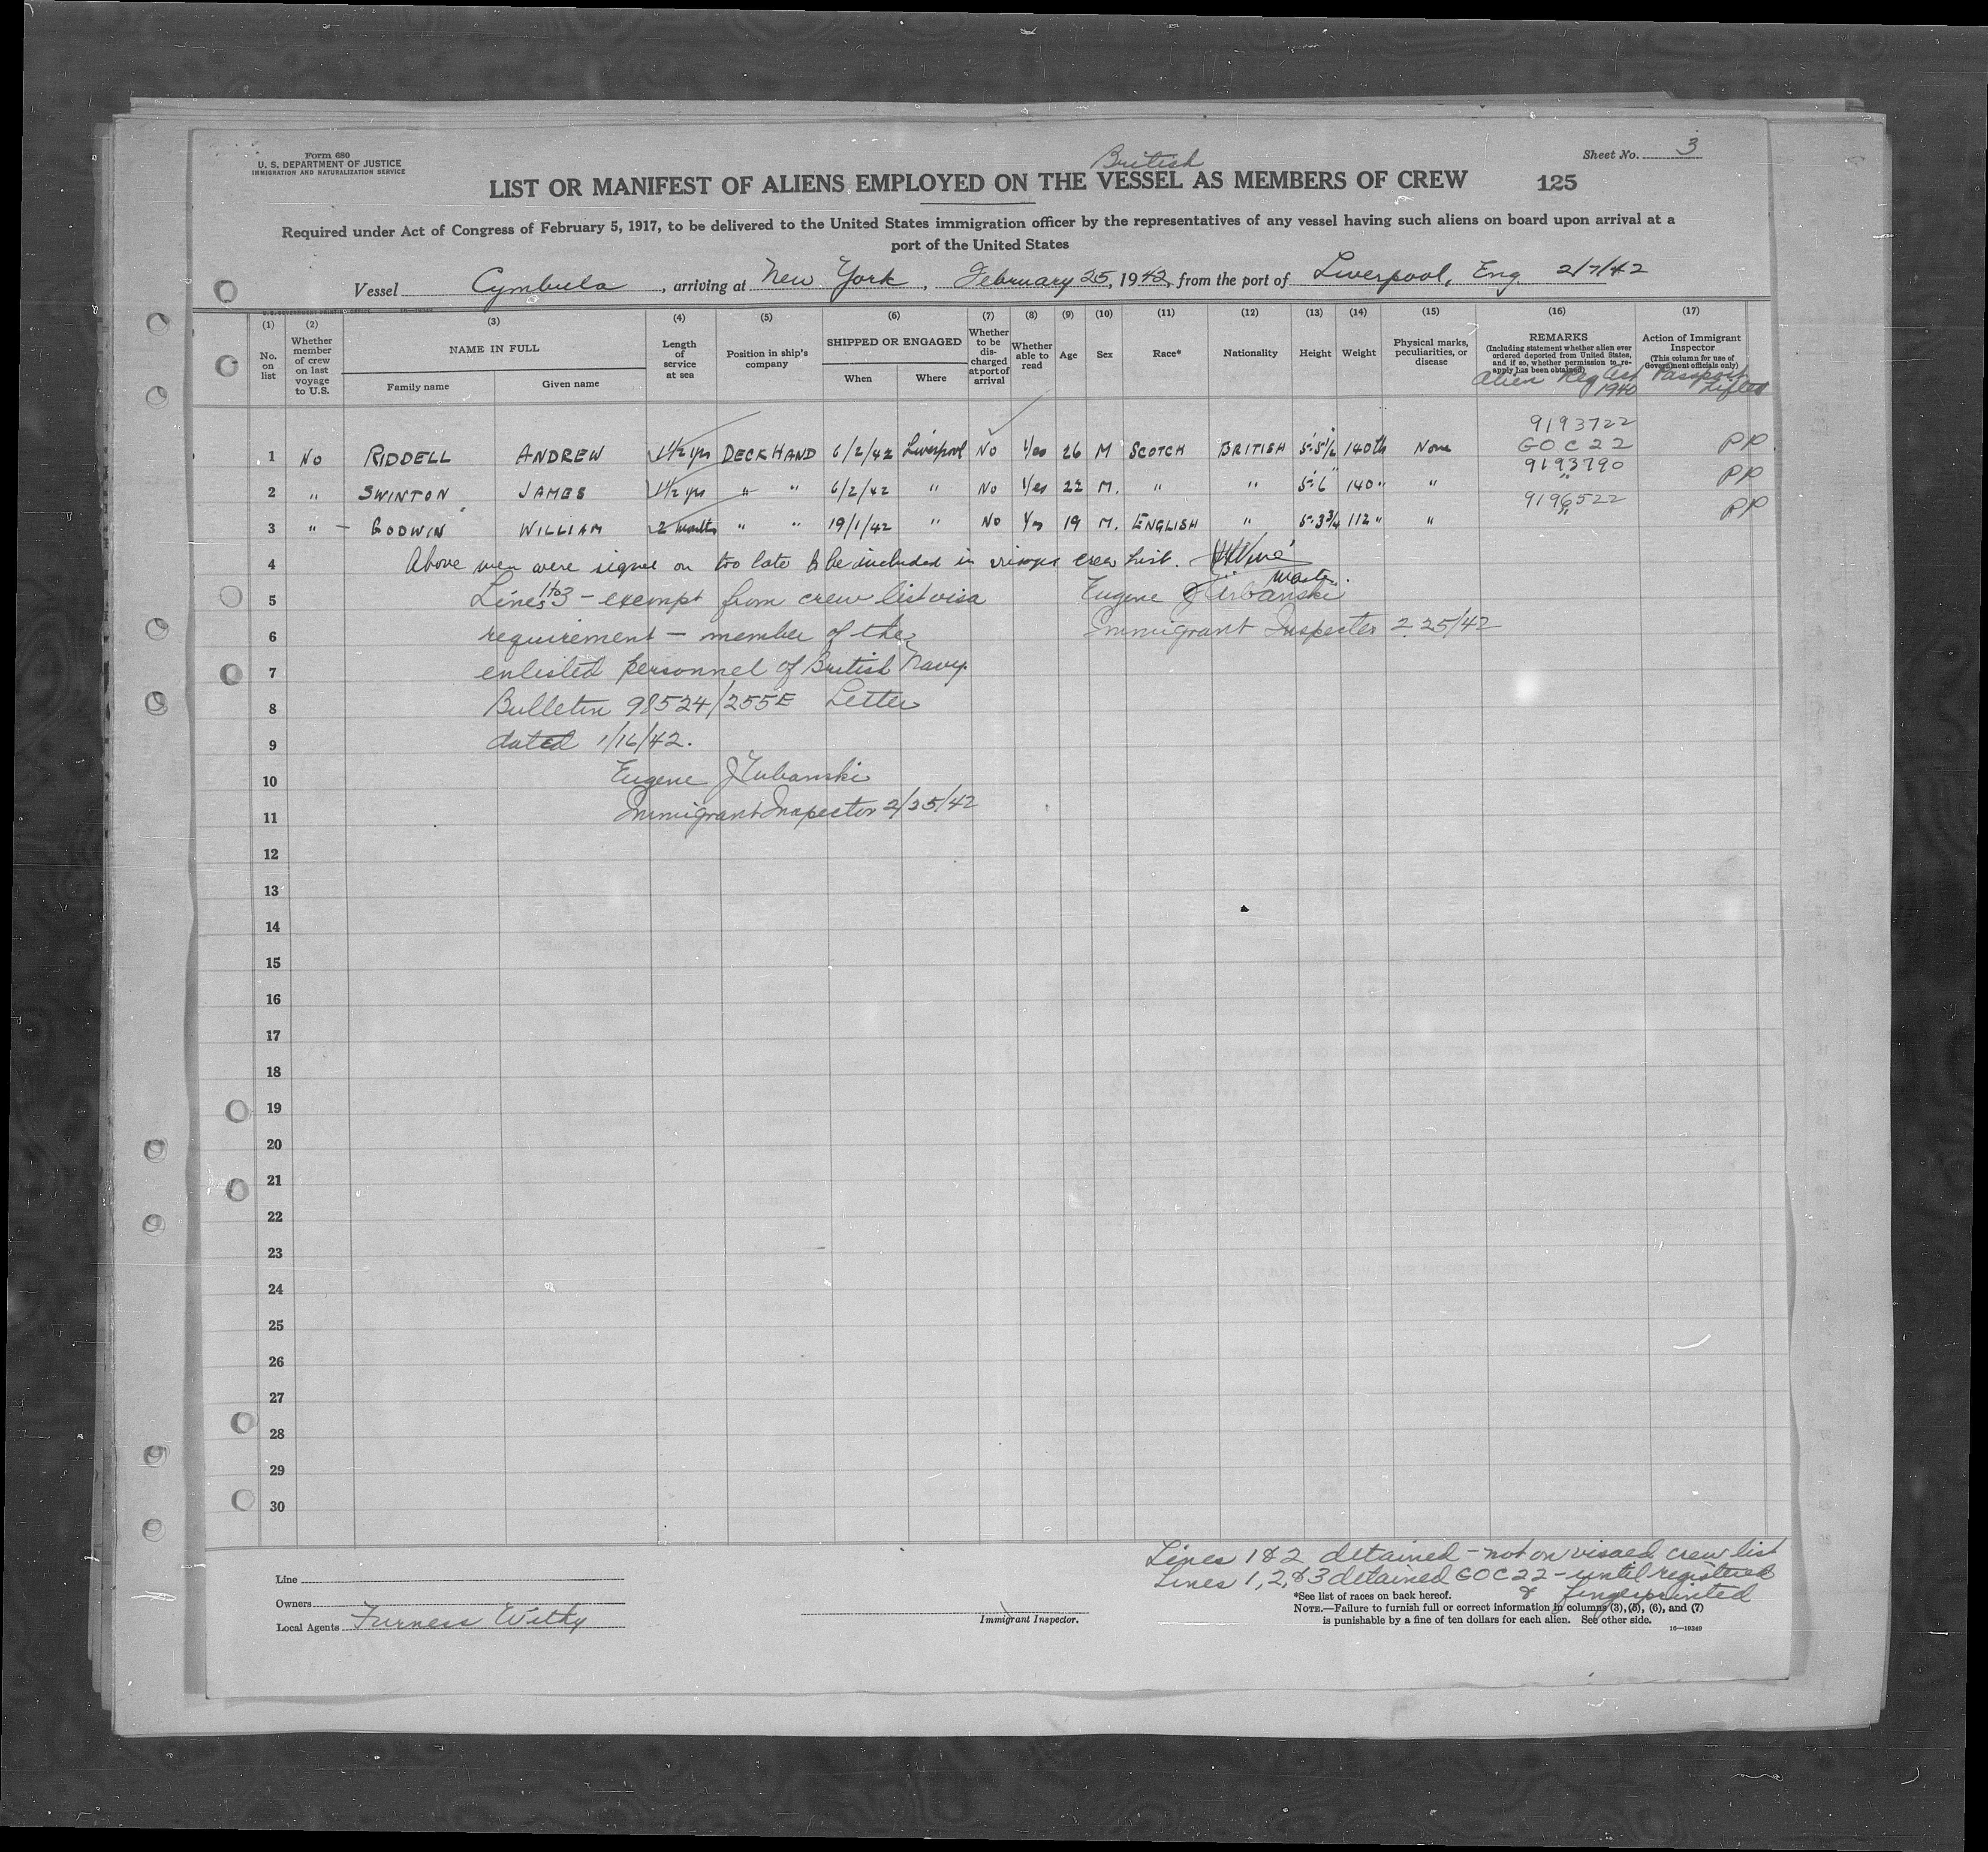 Form 680
U. S. DEPARTMENT OF JUSTICE
IMMIGRATION AND NATURALIZATION SERVICE
Sheet No. 3
British
LIST OR MANIFEST OF ALIENS EMPLOYED ON THE VESSEL AS MEMBERS OF CREW 125
Required under Act of Congress of February 5, 1917, to be delivered to the United States immigration officer by the representatives of any vessel having such aliens on board upon arrival at a
port of the United States
Vessel Cymbula, arriving at New York, February 25, 1942, from the port of Liverpool, Eng. 2/7/42
(1) No. on list
(2) Whether member of crew on last voyage to U.S.
(3) NAME IN FULL Family name Given name
(4) Length of service at sea
(5) Position in ship's company
(6) SHIPPED OR ENGAGED When Where
(7) Whether to be discharged at port of arrival
(8) Whether able to read
(9) Age
(10) Sex
(11) Race*
(12) Nationality
(13) Height
(14) Weight
(15) Physical marks, peculiarities, or disease
(16) REMARKS (Including statement whether alien ever ordered deported from United States, and if so, whether permission to reapply has been obtained)
Alien Reg Act 1940
(17) Action of Immigrant Inspector (This column for use of Government officials only)
Passport Lifted
9193722
1 No RIDDELL ANDREW 1 1/2 yrs DECK HAND 6/2/42 Liverpool No Yes 26 M SCOTCH BRITISH 5'-5 1/2 140 lb None GOC22 PP
9193790
2 " SWINTON JAMES 1 1/2 yrs " " 6/2/42 " No Yes 22 M. " " 5'-6" 140 " " " PP
9196522
3 " - GODWIN WILLIAM 2 months " " 19/1/42 " No Yes 19 M. ENGLISH " 5-3 3/4 112 " " " PP
4 Above men were signed on too late to be included in crew list.
Master.
5 Lines 1 to 3 - exempt from crew list visa Eugene J Urbanski
6 requirement - member of the Immigrant Inspector 2/25/42
7 enlisted personnel of British Navy.
8 Bulletin 98524/255E Letter
9 dated 1/16/42.
10 Eugene J Urbanski
11 Immigrant Inspector 2/25/42
12
13
14
15
16
17
18
19
20
21
22
23
24
25
26
27
28
29
30
Lines 1 & 2 detained - not on visaed crew list
Lines 1, 2, & 3 detained GOC22 - until registered
& fingerprinted
Line
Owners
Local Agents Furness Withy
Immigrant Inspector.
*See list of races on back hereof.
NOTE.—Failure to furnish full or correct information in columns (3), (5), (6), and (7)
is punishable by a fine of ten dollars for each alien. See other side.
16—19349